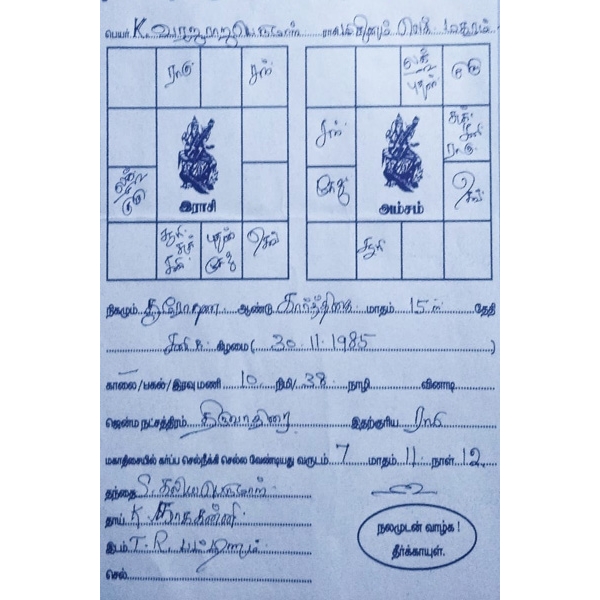 பெயர் K. வரஜராஜபெருமாள் ராசி மிதுனம் லக் மகரம்
ராகு சந் லக் புதன் குரு
சந் சுக் சனி ராகு
லக்ன குரு கேது செவ்
இராசி அம்சம்
சூரி சுக் சனி புதன் கேது செவ் சூரி
நிகழும் குரோதன ஆண்டு கார்த்திகை மாதம் 15 ௳ தேதி
சனி கிழமை ( 30.11.1985 )
காலை/பகல்/இரவு மணி 10 நிமி/ 38 நாழி வினாடி
ஜென்ம நட்சத்திரம் திருவாதிரை இதற்குரிய ராகு
மகாதிசையில் கர்ப்ப செல்நீக்கி செல்ல வேண்டியது வருடம் 7 மாதம் 11 நாள் 12
தந்தை S. கலியபெருமாள்
தாய் K. நாககன்னி
நலமுடன் வாழ்க !
இடம் T.R. பட்டினம்
தீர்க்காயுள்.
செல்